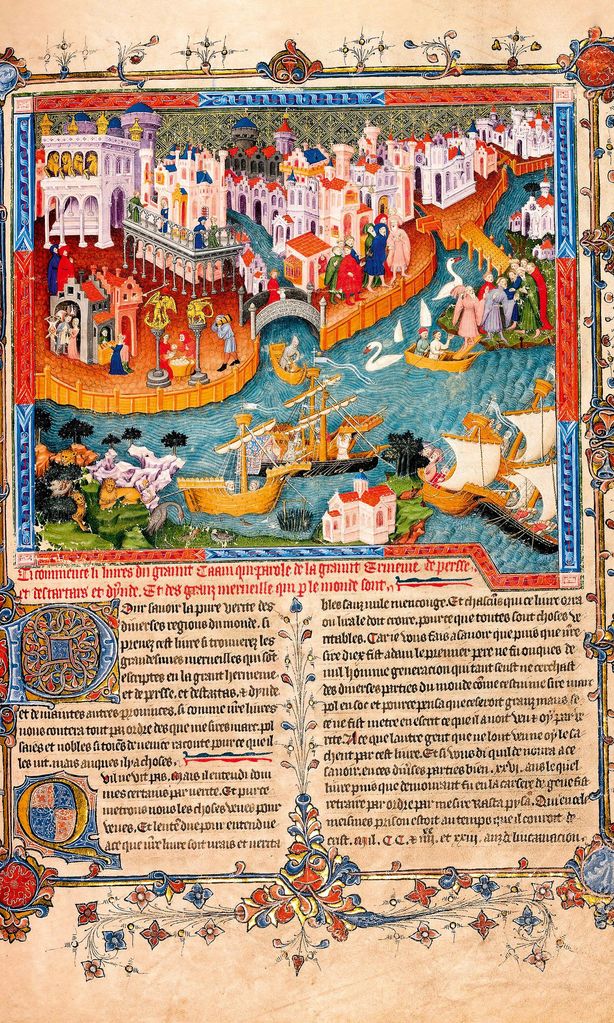 Ci commence li liures du graunt Caam qui parole de la graunt Ermenie de persse
et des tartars et dynde. Et des granz merueilles qui p le monde sont.
Pour sauoir la pure verite des
diuerses regions du monde. si
prenez cest liure si trouuerez les
grandismes merueilles qui sont
escriptes en la grant hermenie
et de persse et des tartas, et dynde
et de maintes autres prouinces, si comme nre liures
nous contera tout par ordre des que mesires marc pol
saies et nobles citoiens de uenice raconte pource que il
les uit. mais auques il y a choses
quil ne vit pas, mais il entendi dou
mes certains par uerite. Et pource
metrons nous les choses veues pour
veues, Et lentendue pour entendue
a ce que nre liure soit urais et uerita
bles sanz nule mencouge. Et chascuns qui ce liure orra
ou lira le doit croire, pource que toutes sont choses ve
ritables. Car ie vous fais a sauoir que puis que nre
sire diex fist adam le premier pere ne fu onques de
nul homme generacion qui tant seust ne cerchast
des diuerses parties du monde come cestui sire marc
pol en soe et pource pensa que ce seroit granz maus se
ce ne fust metre en escrit ce que il auoit veu et oy par ve
rite. A ce que lautre gent que ne lont veu ne oy le sa
chent par cest liure. Et si vous di quil demora a ce
sauoir, en ces diuses parties bien .xxvi. ans le quel
liure puis que demourant fu en la carsere de genes fist
retraire par ordre par mesire Rasta pysa. Qui en cele
meismes prison estoit au temps que il couroit de
crist .Mil. CC. xx iiii. et xviii. anz de lincarnacion.